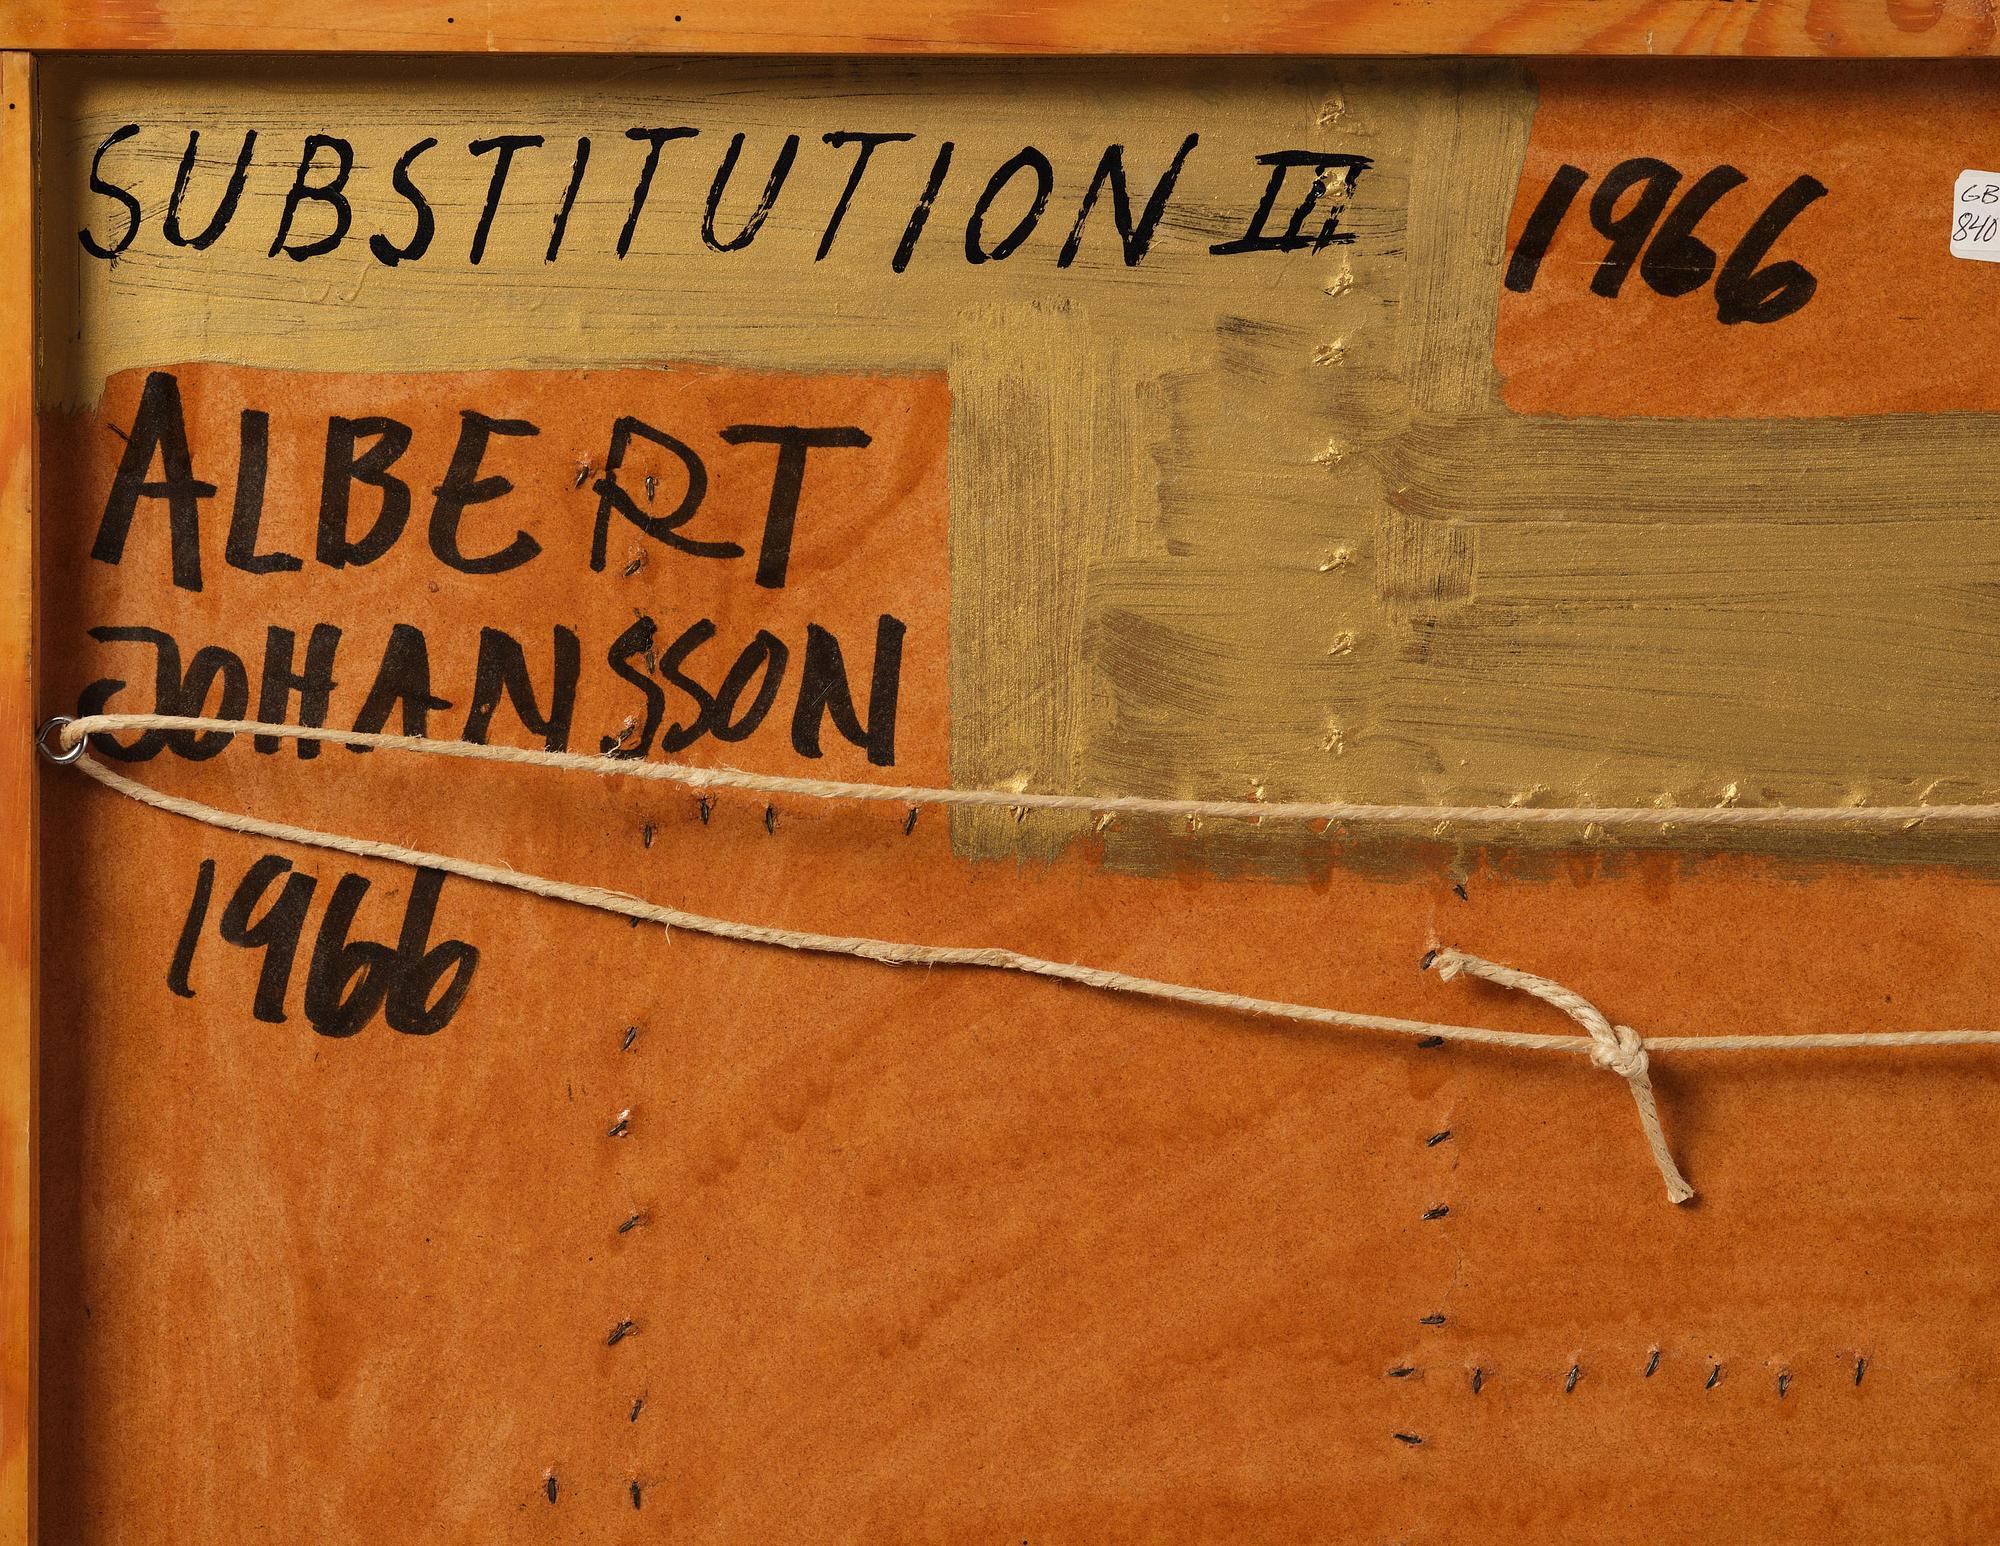 SUBSTITUTION III
1966
GB
840
ALBERT
JOHANSSON
1966